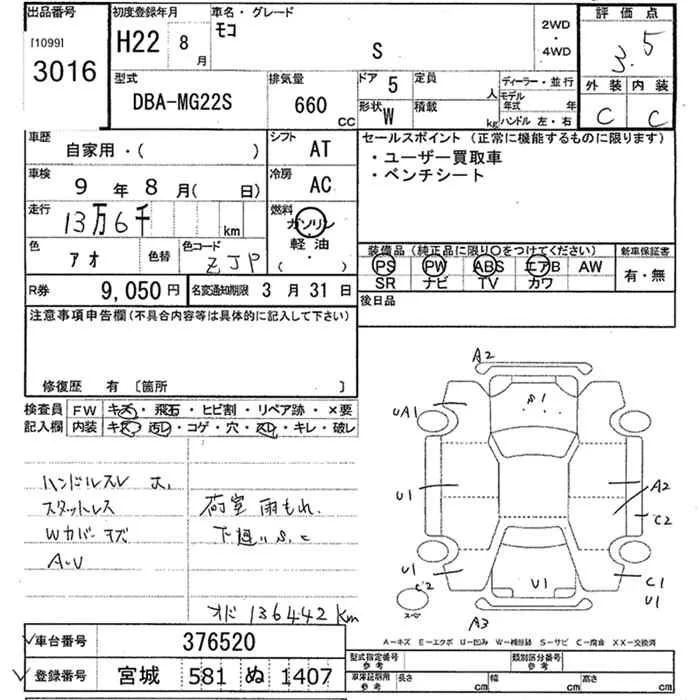 出品番号
[1099]
3016
初度登録年月
H22 8
月
車名・グレード
モコ
S
2WD
・
4WD
評価点
3.5
外装 内装
C C
型式
DBA-MG22S
排気量
660
CC
ドア 5
定員
人
形状 W
積載
kg
ディーラー・並行
モデル年式 年
ハンドル 左・右
車歴
自家用・( )
シフト
AT
車検
9 年 8 月( 日)
冷房
AC
走行
13万6千
km
燃料
ガソリン
軽油
( )
色
アオ
色替
色コード
ZJP
セールスポイント(正常に機能するものに限ります)
・ユーザー買取車
・ベンチシート
装備品(純正品に限り○をつけてください)
PS PW ABS エアB AW
SR ナビ TV カワ
新車保証書
有・無
R券
9,050 円
名変通知期限 3 月 31 日
後日品
注意事項申告欄(不具合内容等は具体的に記入して下さい)
修復歴 有 〔箇所 〕
検査員記入欄
FW キズ・飛石・ヒビ割・リペア跡・×要
内装 キズ・汚レ・コゲ・穴・スレ・キレ・破レ
ハンドルスレ 大,
スタットレス
Wカバーキズ
A・U
荷室 雨もれ.
下廻り S.C
オド 136442 km
A2
UA1
S1
U1
A2
C2
U1
C2
スペア
U1
C1
U1
A3
A-キズ E-エクボ U-凹み W-補修跡 S-サビ C-腐食 XX-交換済
車台番号 376520
登録番号 宮城 581 ぬ 1407
型式指定番号
参考
類別区分番号
参考
車庫証明用
参考
長さ cm 幅 cm 高さ cm